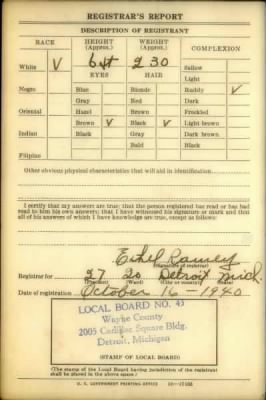 REGISTRAR'S REPORT
DESCRIPTION OF REGISTRANT
RACE
HEIGHT
(Approx.)
WEIGHT
(Approx.)
COMPLEXION
White V
6 ft
230
Sallow
EYES
HAIR
Light
Negro
Blue
Blonde
Ruddy V
Gray
Red
Dark
Oriental
Hazel
Brown
Freckled
Brown V
Black V
Light brown
Indian
Black
Gray
Dark brown
Bald
Black
Filipino
Other obvious physical characteristics that will aid in identification
I certify that my answers are true; that the person registered has read or has had
read to him his own answers; that I have witnessed his signature or mark and that
all of his answers of which I have knowledge are true, except as follows:
Ethel Ramey
(Signature of registrar)
Registrar for 27 20 Detroit Mich.
(Precinct) (Ward) (City or county) (State)
Date of registration October 16 - 1940
LOCAL BOARD NO. 43
Wayne County
2005 Cadillac Square Bldg.
Detroit, Michigan
(STAMP OF LOCAL BOARD)
(The stamp of the Local Board having jurisdiction of the registrant
shall be placed in the above space.)
U. S. GOVERNMENT PRINTING OFFICE